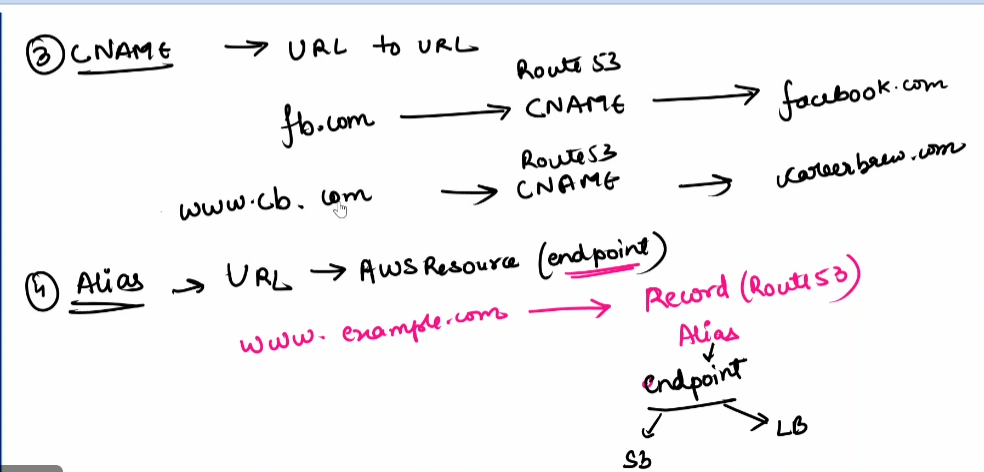 ③ CNAME → URL to URL
Route 53
fb.com → CNAME → facebook.com
Route53
www.cb.com → CNAME → careerbrew.com
④ Alias → URL → AWS Resource (endpoint)
www.example.com → Record (Route 53)
Alias
↓
endpoint
S3 LB